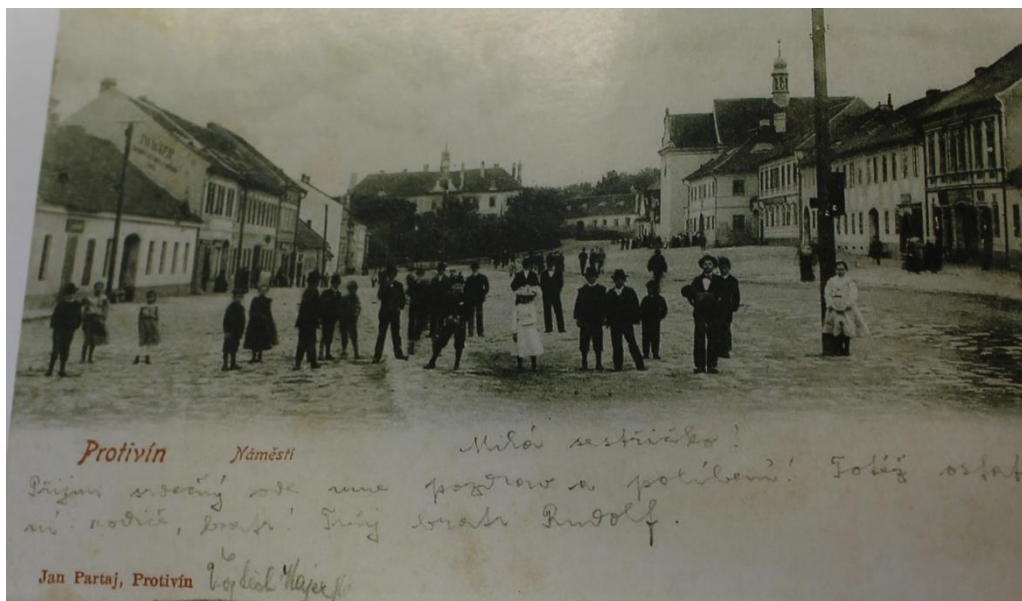 Protivín Náměstí
Milá sestřičko!
Přijmi srdečný ode mne pozdrav a políbení! Totéž ostat
ní rodiče, bratr! Tvůj bratr Rudolf.
Jan Partaj, Protivín